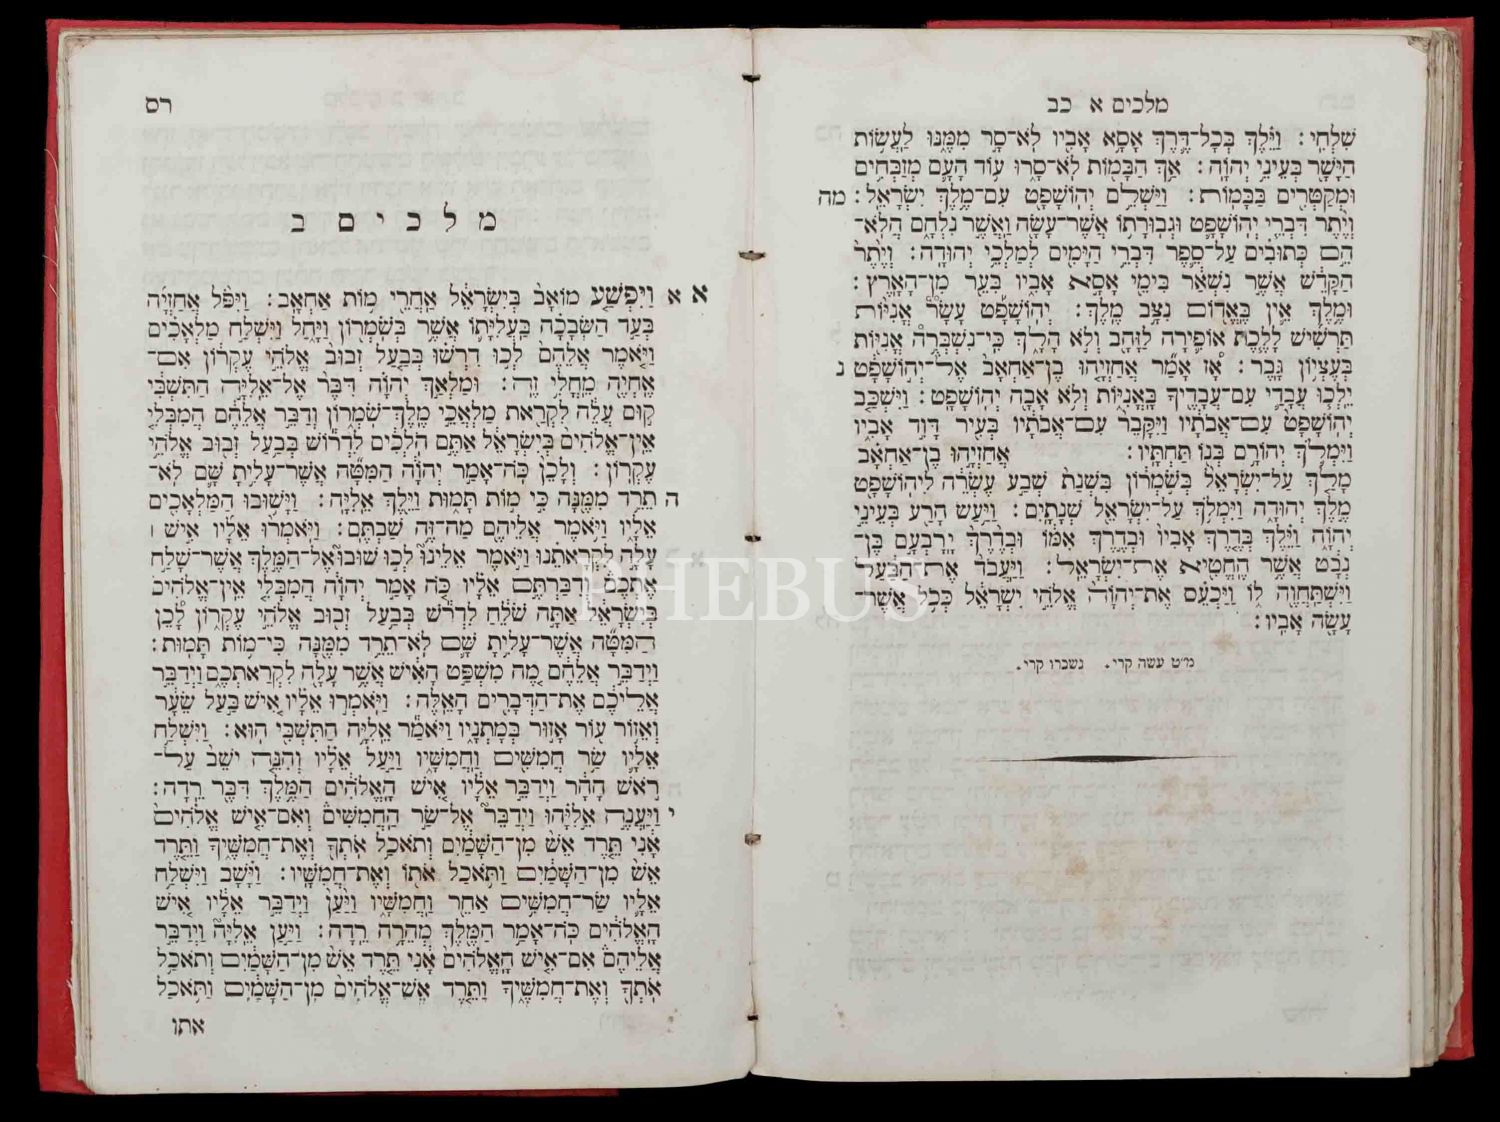 מלכים א כב
שִׁלְחִי: וַיֵּלֶךְ בְּכָל־דֶּרֶךְ אָסָא אָבִיו לֹא־סָר מִמֶּנּוּ לַעֲשׂוֹת
הַיָּשָׁר בְּעֵינֵי יְהוָה: אַךְ הַבָּמוֹת לֹא־סָרוּ עוֹד הָעָם מְזַבְּחִים
וּמְקַטְּרִים בַּבָּמוֹת: וַיַּשְׁלֵם יְהוֹשָׁפָט עִם־מֶלֶךְ יִשְׂרָאֵל: מה
וְיֶתֶר דִּבְרֵי יְהוֹשָׁפָט וּגְבוּרָתוֹ אֲשֶׁר־עָשָׂה וַאֲשֶׁר נִלְחָם הֲלֹא־
הֵם כְּתוּבִים עַל־סֵפֶר דִּבְרֵי הַיָּמִים לְמַלְכֵי יְהוּדָה: וְיֶתֶר
הַקָּדֵשׁ אֲשֶׁר נִשְׁאַר בִּימֵי אָסָא אָבִיו בִּעֵר מִן־הָאָרֶץ:
וּמֶלֶךְ אֵין בֶּאֱדוֹם נִצָּב מֶלֶךְ: יְהוֹשָׁפָט עָשָׂר אֳנִיּוֹת
תַּרְשִׁישׁ לָלֶכֶת אוֹפִירָה לַזָּהָב וְלֹא הָלָךְ כִּי־נִשְׁבְּרֻה אֳנִיּוֹת
בְּעֶצְיוֹן גָּבֶר: אָז אָמַר אֲחַזְיָהוּ בֶן־אַחְאָב אֶל־יְהוֹשָׁפָט נ
יֵלְכוּ עֲבָדַי עִם־עֲבָדֶיךָ בָּאֳנִיּוֹת וְלֹא אָבָה יְהוֹשָׁפָט: וַיִּשְׁכַּב
יְהוֹשָׁפָט עִם־אֲבֹתָיו וַיִּקָּבֵר עִם־אֲבֹתָיו בְּעִיר דָּוִד אָבִיו
וַיִּמְלֹךְ יְהוֹרָם בְּנוֹ תַּחְתָּיו: אֲחַזְיָהוּ בֶן־אַחְאָב
מָלַךְ עַל־יִשְׂרָאֵל בְּשֹׁמְרוֹן בִּשְׁנַת שְׁבַע עֶשְׂרֵה לִיהוֹשָׁפָט
מֶלֶךְ יְהוּדָה וַיִּמְלֹךְ עַל־יִשְׂרָאֵל שְׁנָתָיִם: וַיַּעַשׂ הָרַע בְּעֵינֵי
יְהוָה וַיֵּלֶךְ בְּדֶרֶךְ אָבִיו וּבְדֶרֶךְ אִמּוֹ וּבְדֶרֶךְ יָרָבְעָם בֶּן־
נְבָט אֲשֶׁר הֶחֱטִיא אֶת־יִשְׂרָאֵל: וַיַּעֲבֹד אֶת־הַבַּעַל
וַיִּשְׁתַּחֲוֶה לוֹ וַיַּכְעֵס אֶת־יְהוָה אֱלֹהֵי יִשְׂרָאֵל כְּכֹל אֲשֶׁר־
עָשָׂה אָבִיו:
מ״ט עשה קרי. נשברו קרי.
רס
מלכים ב
א א וַיִּפְשַׁע מוֹאָב בְּיִשְׂרָאֵל אַחֲרֵי מוֹת אַחְאָב: וַיִּפֹּל אֲחַזְיָה
בְּעַד הַשְּׂבָכָה בַּעֲלִיָּתוֹ אֲשֶׁר בְּשֹׁמְרוֹן וַיָּחַל וַיִּשְׁלַח מַלְאָכִים
וַיֹּאמֶר אֲלֵהֶם לְכוּ דִרְשׁוּ בְּבַעַל זְבוּב אֱלֹהֵי עֶקְרוֹן אִם־
אֶחְיֶה מֵחֳלִי זֶה: וּמַלְאַךְ יְהוָה דִּבֶּר אֶל־אֵלִיָּה הַתִּשְׁבִּי
קוּם עֲלֵה לִקְרַאת מַלְאֲכֵי מֶלֶךְ־שֹׁמְרוֹן וְדַבֵּר אֲלֵהֶם הַמִבְּלִי
אֵין־אֱלֹהִים בְּיִשְׂרָאֵל אַתֶּם הֹלְכִים לִדְרוֹשׁ בְּבַעַל זְבוּב אֱלֹהֵי
עֶקְרוֹן: וְלָכֵן כֹּה־אָמַר יְהוָה הַמִּטָּה אֲשֶׁר־עָלִיתָ שָּׁם לֹא־
ה תֵרֵד מִמֶּנָּה כִּי מוֹת תָּמוּת וַיֵּלֶךְ אֵלִיָּה: וַיָּשׁוּבוּ הַמַּלְאָכִים
אֵלָיו וַיֹּאמֶר אֲלֵיהֶם מַה־זֶּה שַׁבְתֶּם: וַיֹּאמְרוּ אֵלָיו אִישׁ ׀
עָלָה לִקְרָאתֵנוּ וַיֹּאמֶר אֵלֵינוּ לְכוּ שׁוּבוּ אֶל־הַמֶּלֶךְ אֲשֶׁר־שָׁלַח
אֶתְכֶם וְדִבַּרְתֶּם אֵלָיו כֹּה אָמַר יְהוָה הַמִבְּלִי אֵין־אֱלֹהִים
בְּיִשְׂרָאֵל אַתָּה שֹׁלֵחַ לִדְרֹשׁ בְּבַעַל זְבוּב אֱלֹהֵי עֶקְרוֹן לָכֵן
הַמִּטָּה אֲשֶׁר־עָלִיתָ שָּׁם לֹא־תֵרֵד מִמֶּנָּה כִּי־מוֹת תָּמוּת:
וַיְדַבֵּר אֲלֵהֶם מֶה מִשְׁפַּט הָאִישׁ אֲשֶׁר עָלָה לִקְרַאתְכֶם וַיְדַבֵּר
אֲלֵיכֶם אֶת־הַדְּבָרִים הָאֵלֶּה: וַיֹּאמְרוּ אֵלָיו אִישׁ בַּעַל שֵׂעָר
וְאֵזוֹר עוֹר אָזוּר בְּמָתְנָיו וַיֹּאמַר אֵלִיָּה הַתִּשְׁבִּי הוּא: וַיִּשְׁלַח
אֵלָיו שַׂר חֲמִשִּׁים וַחֲמִשָּׁיו וַיַּעַל אֵלָיו וְהִנֵּה יֹשֵׁב עַל־
רֹאשׁ הָהָר וַיְדַבֵּר אֵלָיו אִישׁ הָאֱלֹהִים הַמֶּלֶךְ דִּבֶּר רֵדָה:
י וַיַּעֲנֶה אֵלִיָּהוּ וַיְדַבֵּר אֶל־שַׂר הַחֲמִשִּׁים וְאִם־אִישׁ אֱלֹהִים
אָנִי תֵּרֶד אֵשׁ מִן־הַשָּׁמַיִם וְתֹאכַל אֹתְךָ וְאֶת־חֲמִשֶּׁיךָ וַתֵּרֶד
אֵשׁ מִן־הַשָּׁמַיִם וַתֹּאכַל אֹתוֹ וְאֶת־חֲמִשָּׁיו: וַיָּשָׁב וַיִּשְׁלַח
אֵלָיו שַׂר־חֲמִשִּׁים אַחֵר וַחֲמִשָּׁיו וַיַּעַן וַיְדַבֵּר אֵלָיו אִישׁ
הָאֱלֹהִים כֹּה־אָמַר הַמֶּלֶךְ מְהֵרָה רֵדָה: וַיַּעַן אֵלִיָּה וַיְדַבֵּר
אֲלֵיהֶם אִם־אִישׁ הָאֱלֹהִים אָנִי תֵּרֶד אֵשׁ מִן־הַשָּׁמַיִם וְתֹאכַל
אֹתְךָ וְאֶת־חֲמִשֶּׁיךָ וַתֵּרֶד אֵשׁ־אֱלֹהִים מִן־הַשָּׁמַיִם וַתֹּאכַל
אתו
PHEBUS